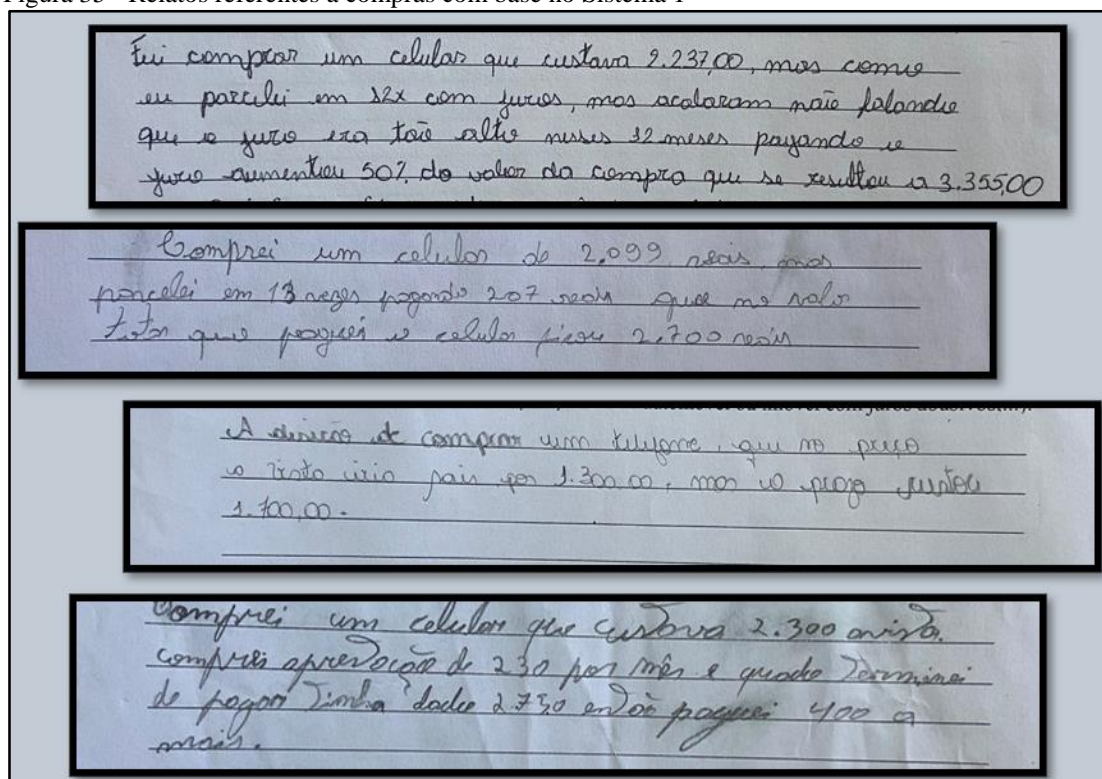 Figura 33 - Relatos referentes a compras com base no Sistema 1
Fui comprar um celular que custava 2.237,00, mas como
eu parcelei em 12x com juros, mas acabaram não falando
que o juro era tão alto nesses 12 meses pagando o
juro aumentou 50% do valor da compra que se resultou a 3.355,00
Comprei um celular de 2,099 reais mas
parcelei em 13 vezes pagando 207 reais que no valor
que paguei o celular ficou 2,700 reais
A de comprar um telefone, que no preço
a vista iria por 1.300,00, mas a prazo
1.700,00.
Comprei um celular que custava 2.300 avista.
comprei aprestação de 230 por mês e quado Terminei
de pagar Tinha dado 2750 então paguei 400 a
mais.